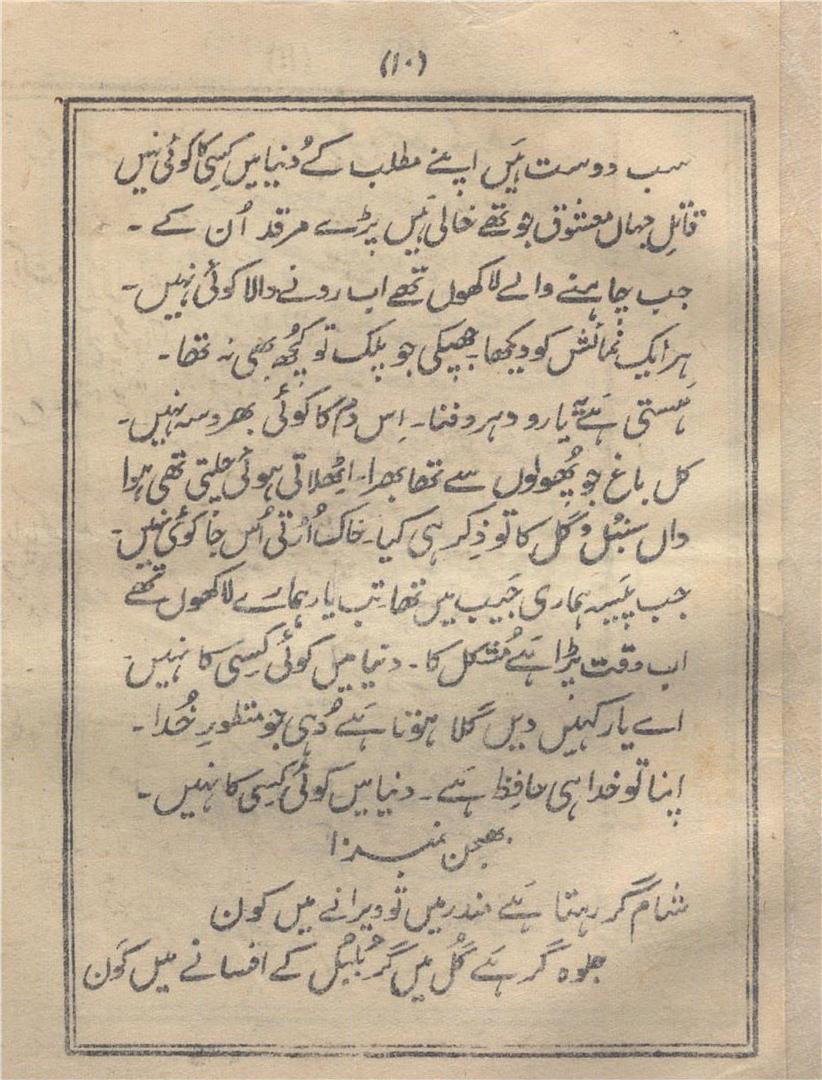 (۱۰)
سب دوست ہیں اپنے مطلب کے دُنیا میں کِسی کا کوئی نہیں
قاتلِ جہاں معشوق جو تھے خالی ہیں پڑے مرقد اُن کے ۔
جب چاہنے والے لاکھوں تھے اب رونے والا کوئی نہیں ۔
ہر ایک نمائش کو دیکھا ۔ جھپکی جو پلک تو کُچھ بھی نہ تھا ۔
ہستی ہے یہ یارو دہر و فنا ۔ اِس دم کا کوئی بھروسہ نہیں ۔
کل باغ جو پُھولوں سے تھا بھرا ۔ اِٹھلاتی ہوئی چلتی تھی ہوا
واں سنبُل و گُل کا تو ذِکر ہی کیا ۔ خاک اُڑتی اُس جا کوئی نہیں ۔
جب پیسہ ہماری جَیب میں تھا تب یار ہمارے لاکھوں تھے
اب وقت پڑا ہے مُشکل کا ۔ دنیا میں کوئی کِسی کا نہیں ۔
اے یار کہیں دیں گلا ہوتا ہے وُہی جو منظورِ خُدا ۔
اپنا تو خدا ہی حافِظ ہے ۔ دنیا میں کوئی کِسی کا نہیں ۔
بھجن نمبر ۱۰
شام گر رہتا ہے مندر میں تو ویرانے میں کون
جلوہ گر ہے گُل میں گر بُلبُل کے افسانے میں کَون